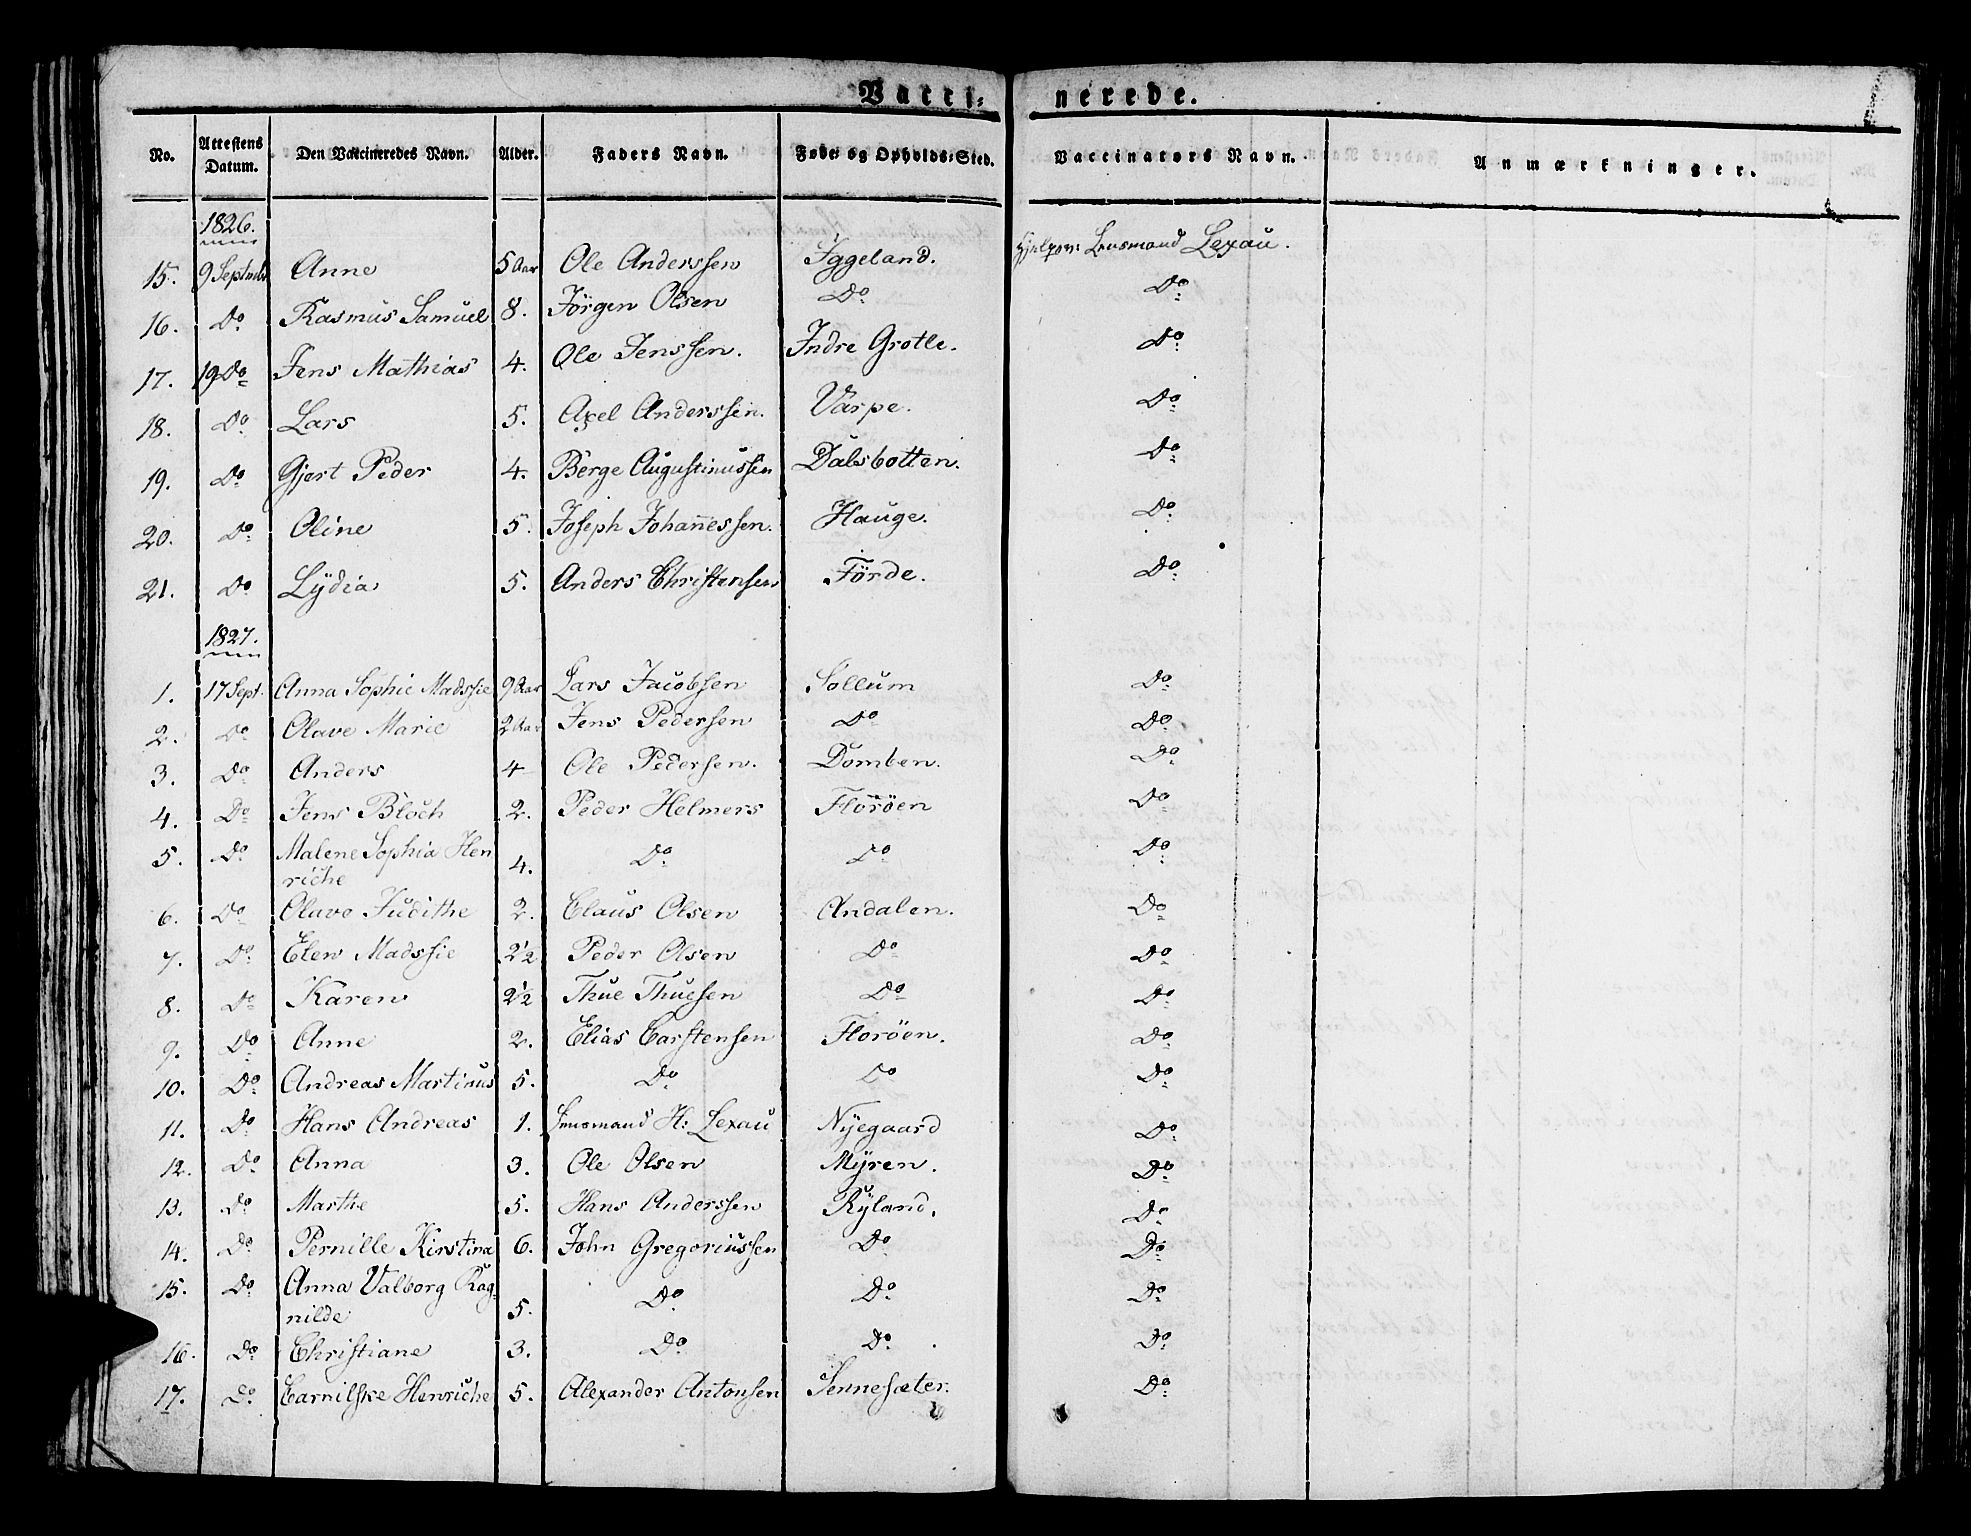 Vacci= nerede.
No. Attestens Datum. Den Vaccineredes Navn. Alder. Faders Navn. Føde= og Opholds=Sted. Vaccinators Navn. Anmærkninger.
1826.
15. 9 Septmbr Anne 5 Aar Ole Anderssen Iggeland. Hjelper: Lensmand Lexau.
16. Do Rasmus Samuel 8. Jörgen Olsen Do Do
17. 19 Do Jens Mathias 4. Ole Jenssen. Indre Grotle. Do
18. Do Lars 5. Axel Anderssen. Varpe. Do
19. Do Gjert Peder 4. Berge Augustinussen Dalsbotten. Do
20. Do Oline 5. Joseph Johannessen. Hauge. Do
21. Do Lydia 5. Anders Christensen Förde. Do
1827.
1. 17 Sept. Anna Sophie Madssie 9 Aar Lars Jacobsen Sollum Do
2. Do Olave Marie 2 Aar Jens Pedersen Do Do
3. Do Anders 4 Ole Pedersen. Domben. Do
4. Do Jens Bloch 2. Peder Helmers Floröen Do
5. Do Malene Sophia Hen
riche 4. Do Do Do
6. Do Olave Judithe 2. Claus Olsen Andalen. Do
7. Do Elen Madssie 2½ Peder Olsen Do Do
8. Do Karen 2½ Thue Thuesen Do Do
9. Do Anne 2. Elias Carstensen Floröen. Do
10. Do Andreas Martinus 5. Do Do Do
11. Do Hans Andreas 1. Lensmand H: Lexau Nyegaard Do
12. Do Anna 3. Ole Olsen Myren. Do
13. Do Marthe 5. Hans Anderssen Ryland. Do
14. Do Pernille Kirstina 6. John Gregoriussen Do Do
15. Do Anna Valborg Rag
nilde 5. Do Do Do
16. Do Christiane 3. Do Do Do
17. Do Carnilske Henriche 5. Alexander Antonsen Sennesæter. Do